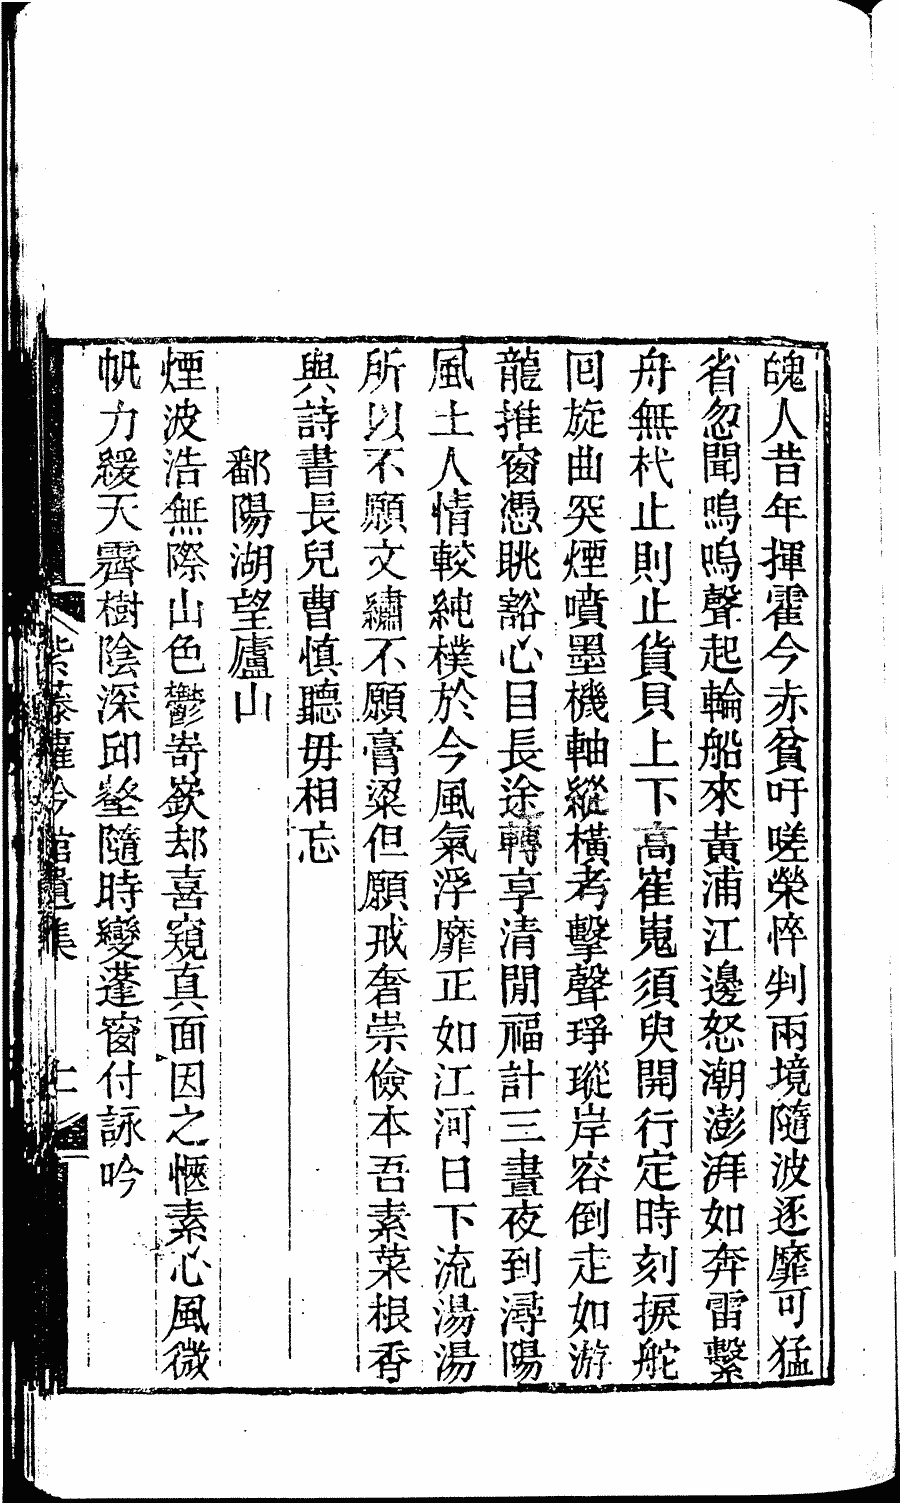 醜人昔年揮霍今赤貧吁嗟榮悴判兩境隨波逐靡可猛
省忽聞嗚嗚聲起輪船來黃浦江邊怒潮澎湃如奔雷繫
舟無杙止則止貨貝上下高崔嵬須臾開行定時刻捩舵
囘旋曲突煙噴墨機軸縱橫考擊聲琤瑽岸容倒走如游
龍推窗憑眺豁心目長途轉享清閒福計三晝夜到潯陽
風土人情較純樸於今風氣浮靡正如江河日下流湯湯
所以不願文繡不願膏粱但願戒奢崇儉本吾素菜根香
與詩書長兒曹慎聽毋相忘
鄱陽湖望廬山
煙波浩無際山色鬱嵜嶔却喜窺真面因之愜素心風微
帆力緩天霽樹陰深邱壑隨時變蓬窗付詠吟
紫藤蘿吟館遺集